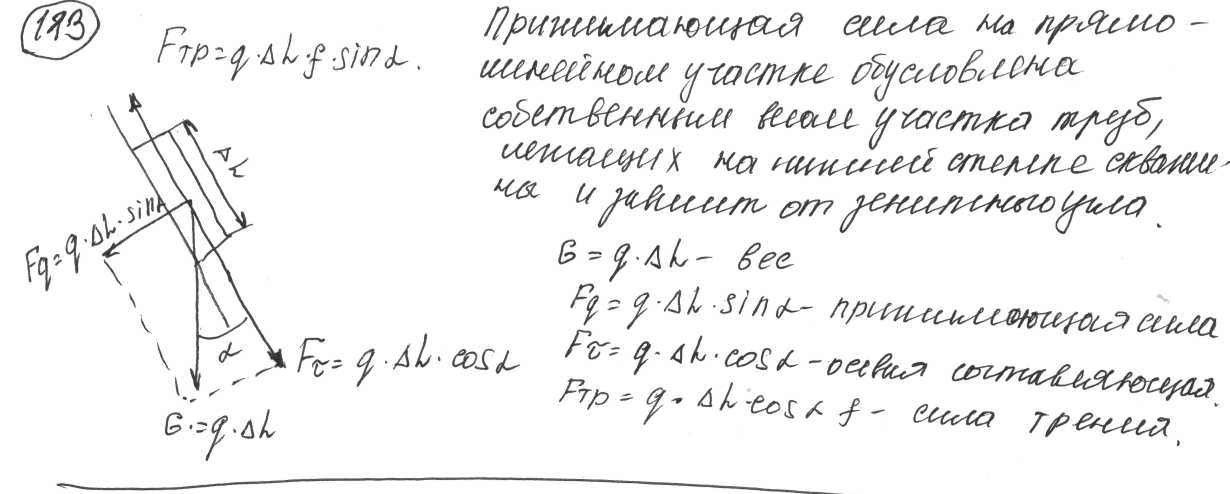 193
Fтр=q·Δh·f·sinα.
Прижимающая сила на прямо-
линейном участке обусловлена
собственным весом участка труб,
лежащих на нижней стенке скважи-
ны и зависит от зенитного угла.
Δh
Fq=q·Δh·sinα
α
Fτ=q·Δh·cosα
G·=q·Δh
G=q·Δh- вес
Fq=q·Δh·sinα- прижимающая сила
Fτ=q·Δh·cosα-осевая составляющая.
Fтр=q·Δh·cosα f- сила трения.